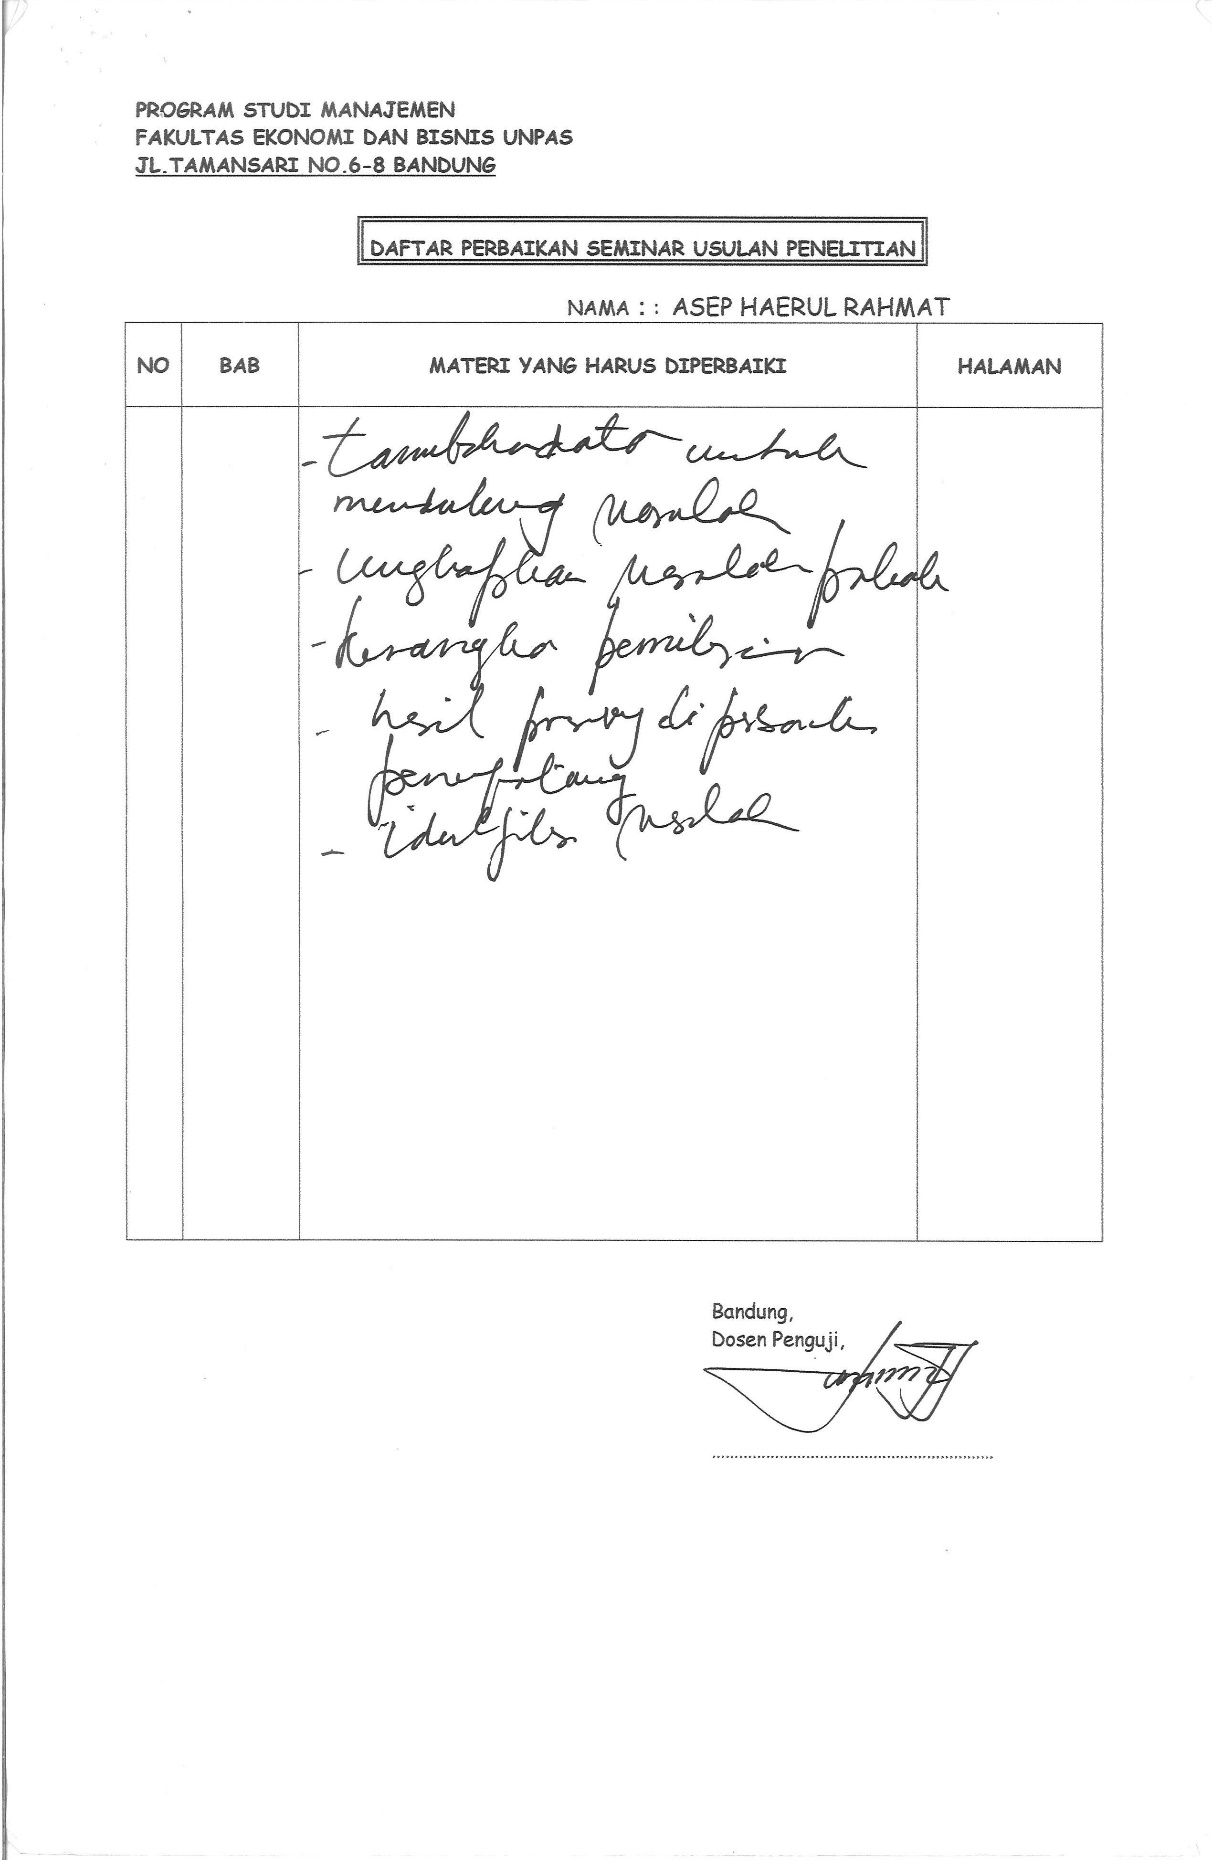 PROGRAM STUDI MANAJEMEN
FAKULTAS EKONOMI DAN BISNIS UNPAS
JL.TAMANSARI NO.6-8 BANDUNG
DAFTAR PERBAIKAN SEMINAR USULAN PENELITIAN
NAMA : : ASEP HAERUL RAHMAT
NO BAB MATERI YANG HARUS DIPERBAIKI HALAMAN
- tambahan data untuk
mendukung masalah
- ungkapkan masalah pokok
- kerangka pemikiran
- hasil di
- identifikasi masalah
Bandung,
Dosen Penguji,